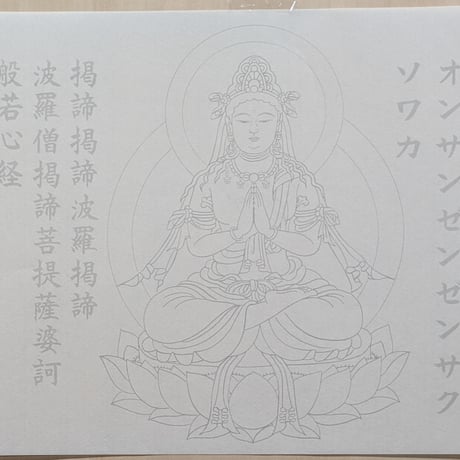 オンサンゼンゼンサク
ソワカ
掲諦掲諦波羅掲諦
波羅僧掲諦菩提薩婆訶
般若心経